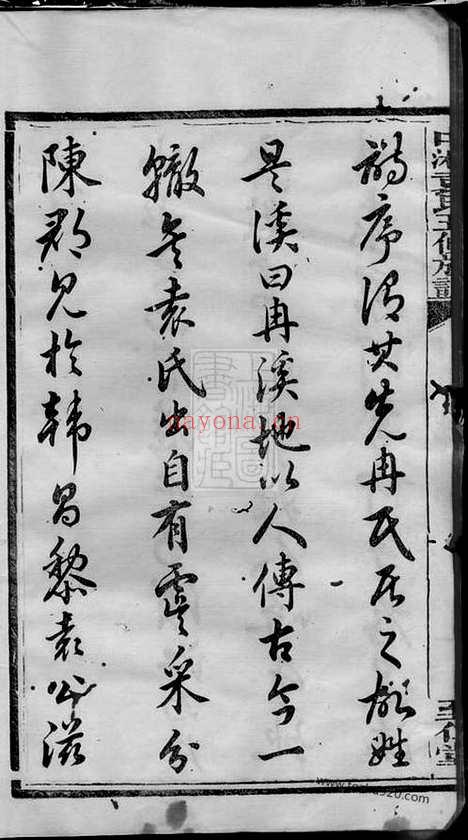 詩序謂其先冉氏居之故姓
是溪曰冉溪地以人傳古今一
轍矣袁氏出自有虞采分
陳郡見於韓昌黎袁公滋
nayona.cn